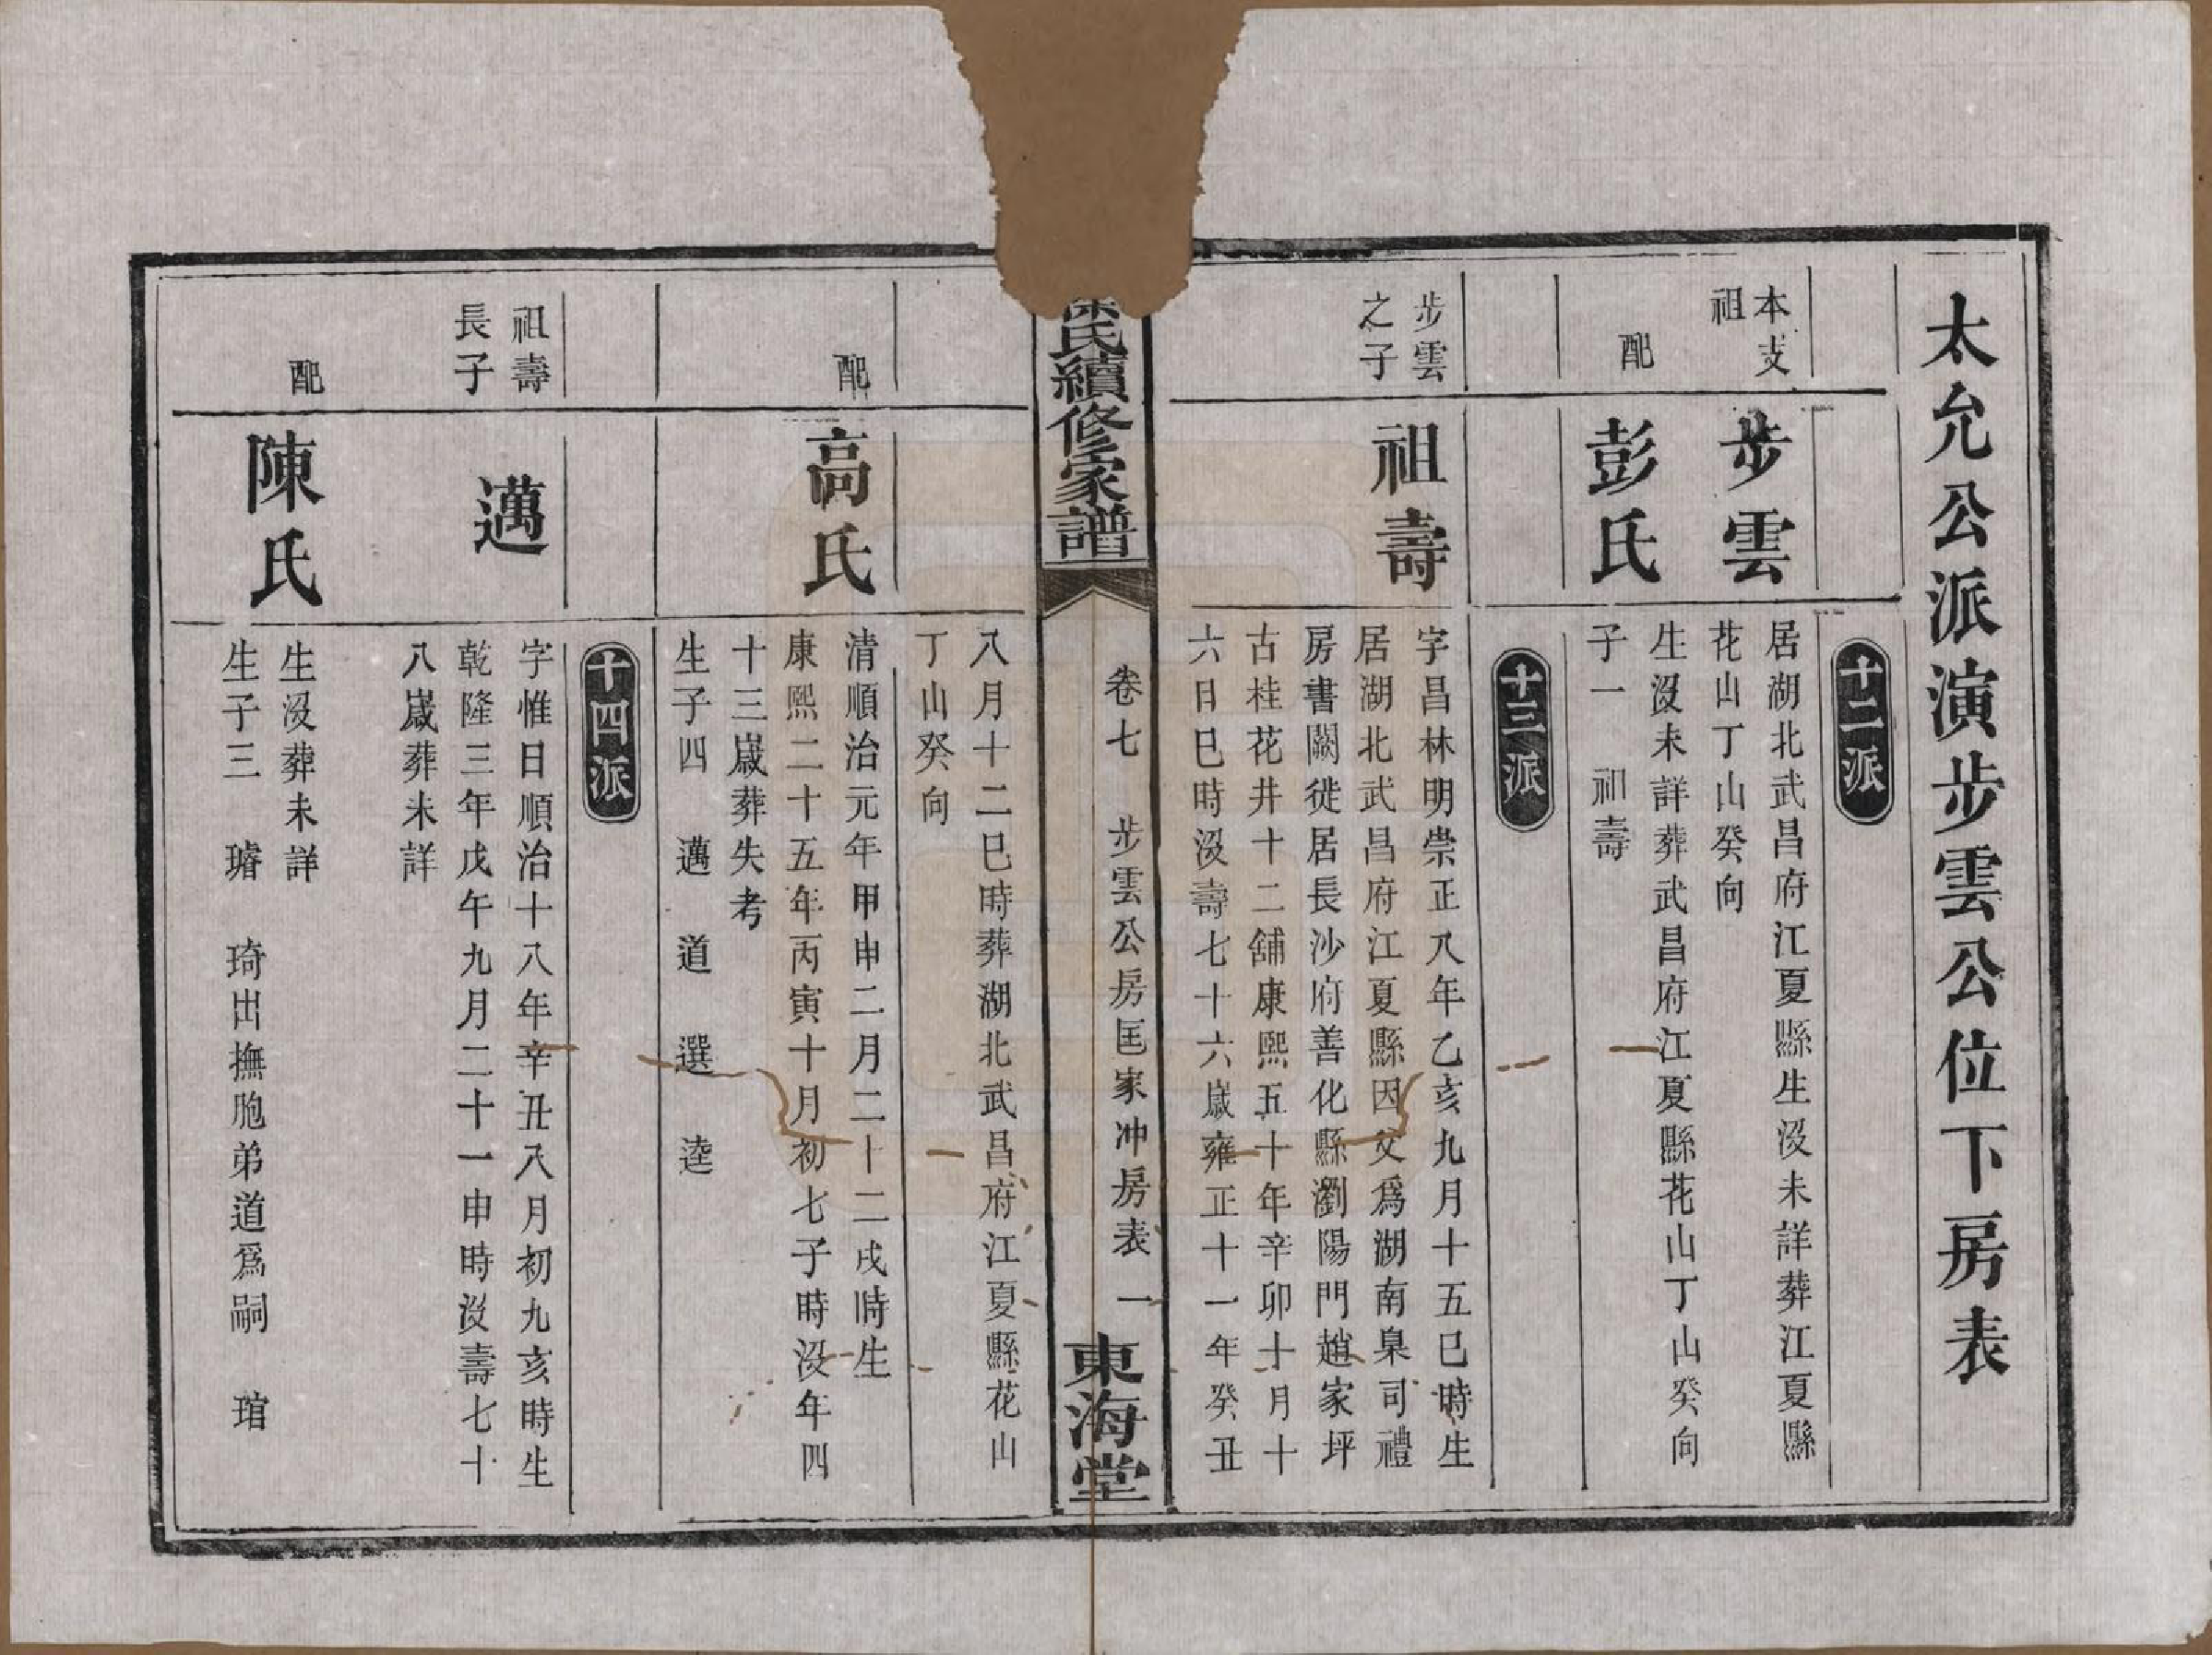 太允公派演步雲公位下房表
十二派
本支祖
步雲
居湖北武昌府江夏縣生沒未詳葬江夏縣
花山丁山癸向
配
彭氏
生沒未詳葬武昌府江夏縣花山丁山癸向
子一 祖壽
十三派
步雲之子
祖壽
字昌林明崇正八年乙亥九月十五巳時生
居湖北武昌府江夏縣因父爲湖南臬司禮
房書闕徙居長沙府善化縣瀏陽門趙家坪
古桂花井十二舖康熙五十年辛卯十月十
六日巳時沒壽七十六歲雍正十一年癸丑
氏續修家譜
卷七 步雲公房匡家冲房表 一
東海堂
八月十二巳時葬湖北武昌府江夏縣花山
丁山癸向
配
高氏
清順治元年甲申二月二十二戌時生
康熙二十五年丙寅十月初七子時沒年四
十三歲葬失考
生子四 邁 道 選 逵
十四派
祖壽長子
邁
字惟日順治十八年辛丑八月初九亥時生
乾隆三年戊午九月二十一申時沒壽七十
八歲葬未詳
配
陳氏
生沒葬未詳
生子三 璿 琦出撫胞弟道爲嗣 琯